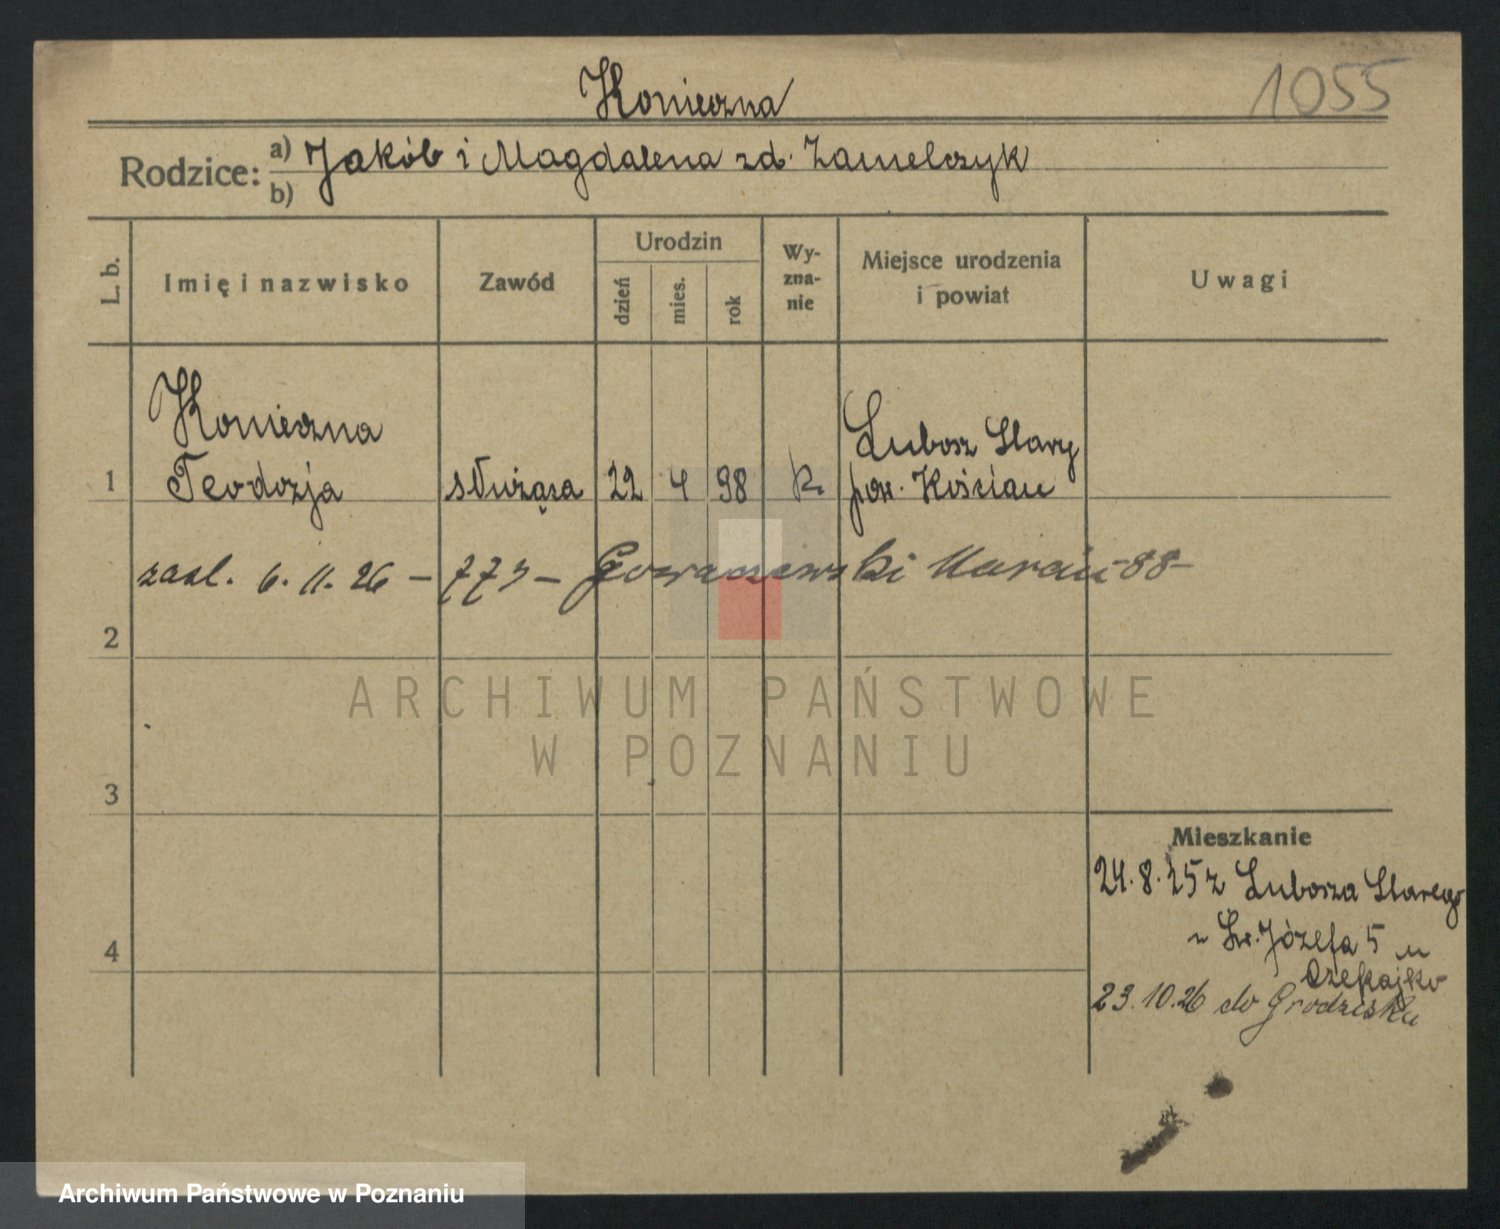 Konieczna
1055
Rodzice: a) Jakób i Magdalena zd. Zamelczyk
b)
L. b.
Imię i nazwisko
Zawód
Urodzin
dzień
mies.
rok
Wy-
zna-
nie
Miejsce urodzenia
i powiat
Uwagi
Konieczna
Teodozja
służąca
22
4
98
k.
Lubosz Stary
pow. Kościan
1
zaśl. 6. 11. 26 – 773 – Marcin – 88 –
2
ARCHIWUM PAŃSTWOWE
W POZNANIU
3
Mieszkanie
24.8.25 z Lubosza Starego
Św. Józefa 5 u
4
23.10.26 do Grodziska
Archiwum Państwowe w Poznaniu